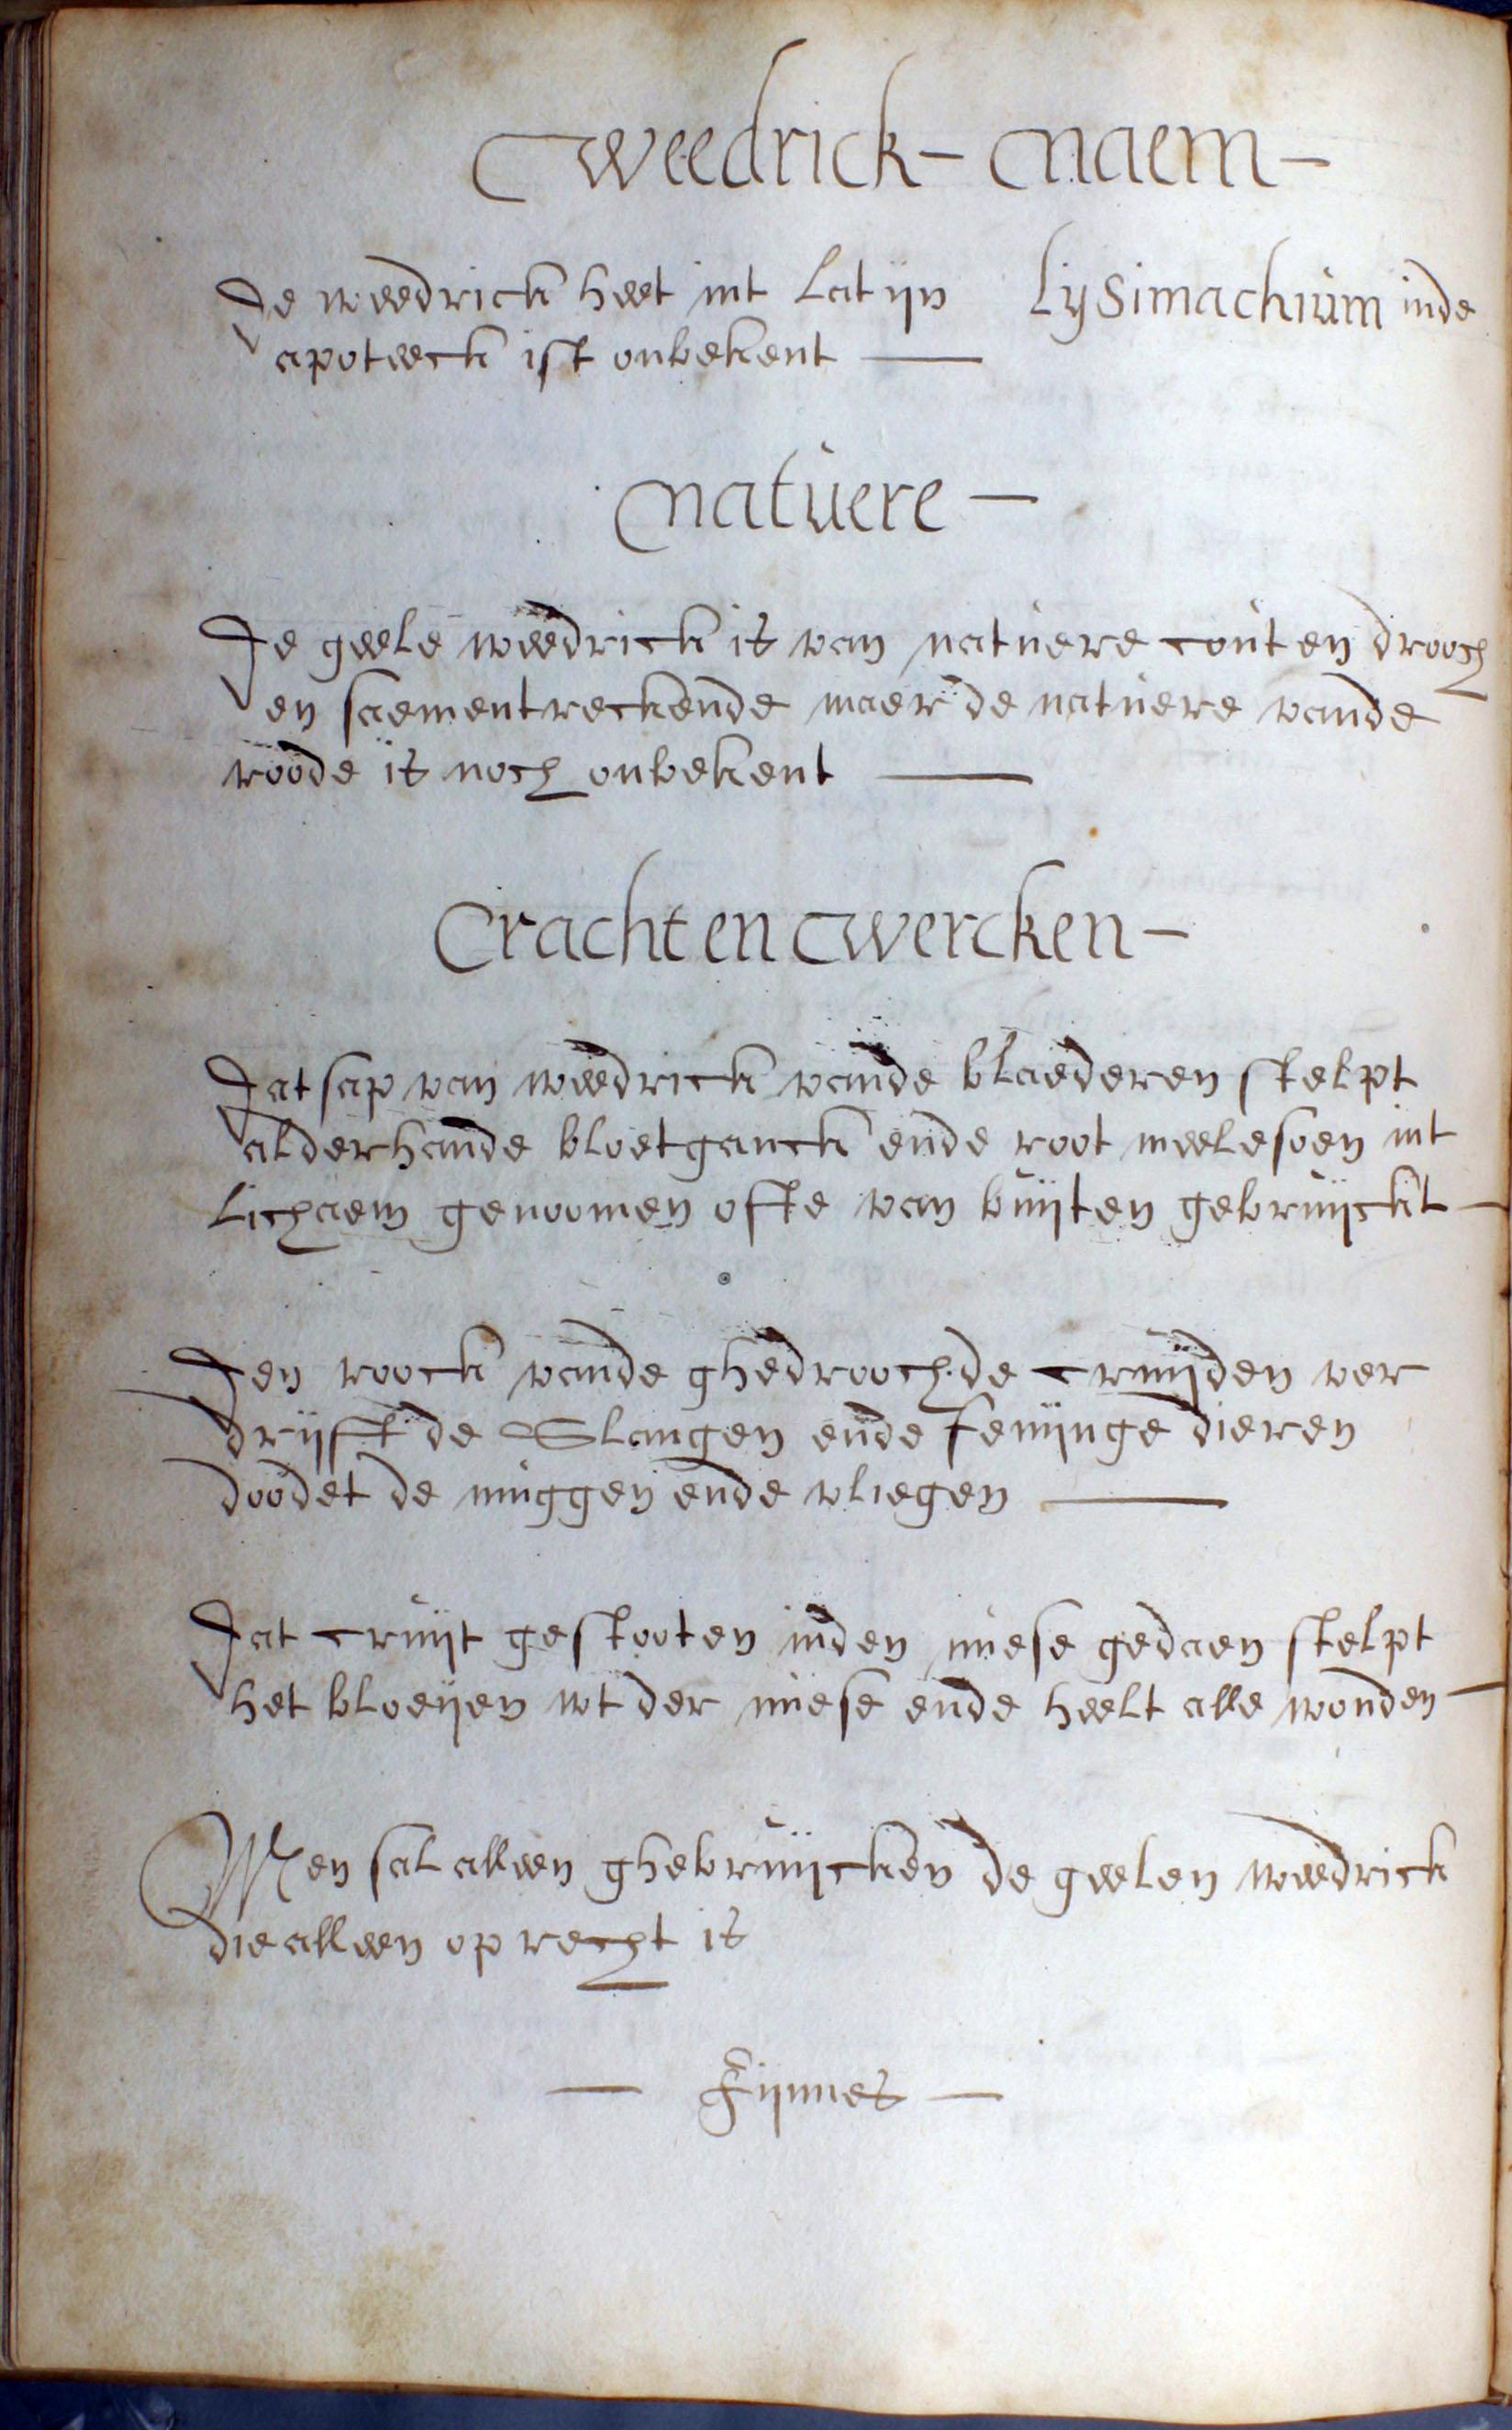 weedrick - naem -
De weedrick heet int Latijn Lysimachium inde
apoteeck ist onbekent
natuere -
De geele weedrick is van natuere cout en drooch
en saementreckende maer de natuere vande
roode is noch onbekent
Cracht en wercken -
Dat sap van weedrick vande blaederen stelpt
alderhande bloetganck ende root meelesoen int
Lichaem genoomen ofte van buijten gebruijckt -
Den roock vande ghedroochde cruijden ver
drijft de Slangen ende fenijnge dieren
doodet de muggen ende vliegen
Dat cruijt gestooten inden nuese gedaen stelpt
het bloeijen wt der nuese ende heelt alle wonden -
Men sal alleen ghebruijcken de geelen weedrick
die alleen oprecht is
- Fijnnes -